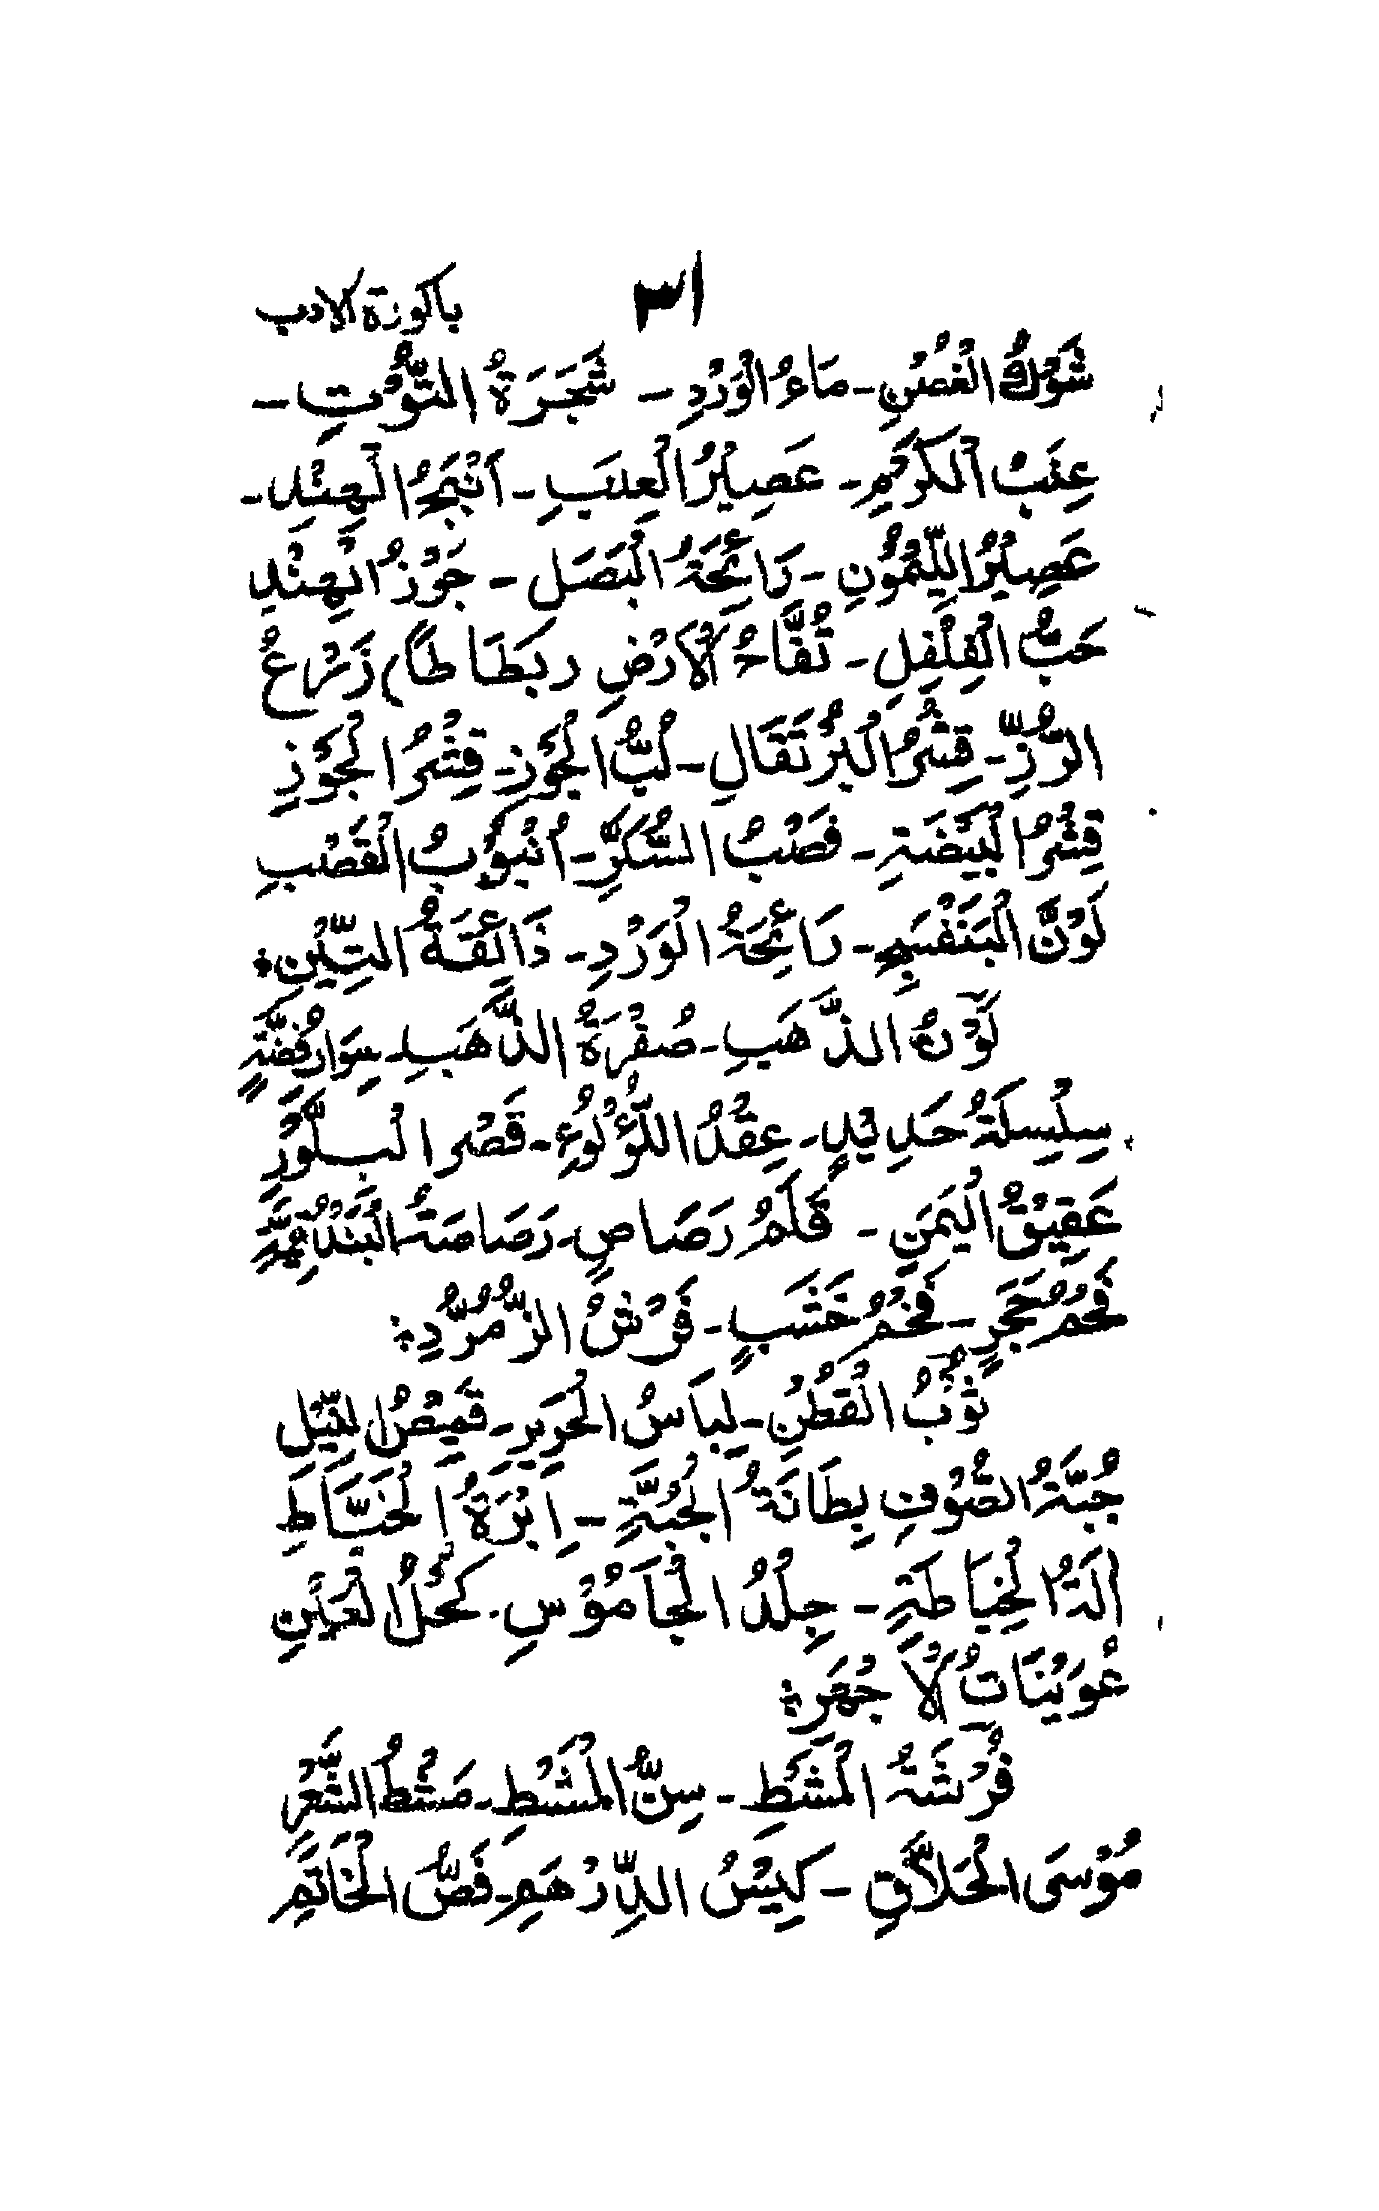 باكورة الادب ٣١
شَوْكُ الْغُصْنِ - مَاءُ الْوَرْدِ - شَجَرَةُ التُّوْتِ -
عِنَبُ الْكَرْمِ - عَصِيْرُ الْعِنَبِ - اَنْبَجُ الْهِنْدِ -
عَصِيْرُ اللِّيْمُوْنِ - رَائِحَةُ الْبَصَلِ - جَوْزُ الْهِنْدِ
حَبُّ الْفِلْفِلِ - تُفَّاحُ الْاَرْضِ (بَطَاطَا) زَرْعُ
الرُّزِّ - قِشْرُ الْبُرْتَقَالِ - لُبُّ الْجَوْزِ - قِشْرُ الْجَوْزِ
قِشْرُ الْبَيْضَةِ - قَصْبُ السُّكَّرِ - اُنْبُوْبُ الْقَصْبِ
لَوْنُ الْبَنَفْسَجِ - رَائِحَةُ الْوَرْدِ - ذَائِقَةُ التِّيْنِ :
لَوْنُ الذَّهَبِ - صُفْرَةُ الذَّهَبِ - سِوَارُ فِضَّةٍ
سِلْسِلَةُ حَدِيْدٍ - عِقْدُ اللُّؤْلُوءِ - قَصْر الْبِلَّوْرِ
عَقِيْقُ الْيَمَنِ - قَلَمُ رَصَاصٍ - رَصَاصَةُ الْبُنْدُقِيَّةِ
فَحْمُ حَجَرٍ - فَحْمُ خَشَبٍ - فَرْشُ الزُّمُرُّدِ :
ثَوْبُ الْقُطْنِ - لِبَاسُ الْحَرِيْرِ - قَمِيْصُ النِّيْلِ
جُبَّةُ الصُّوْفِ بِطَانَةُ الْجُبَّةِ - اِبْرَةُ الْخَيَّاطِ
اٰلَةُ الْخِيَاطَةِ - جِلْدُ الْجَامُوْسِ - كُحْلُ الْعَيْنِ
عُوَيْنَاتُ الْاَجْهَرِ :
فُرْشَةُ الْمُشْطِ - سِنُّ الْمُشْطِ - مَشْطُ الشَّعْرِ
مُوْسَى الْحَلَّاقِ - كِيْسُ الدِّرْهَمِ - فَصُّ الْخَاتَمِ